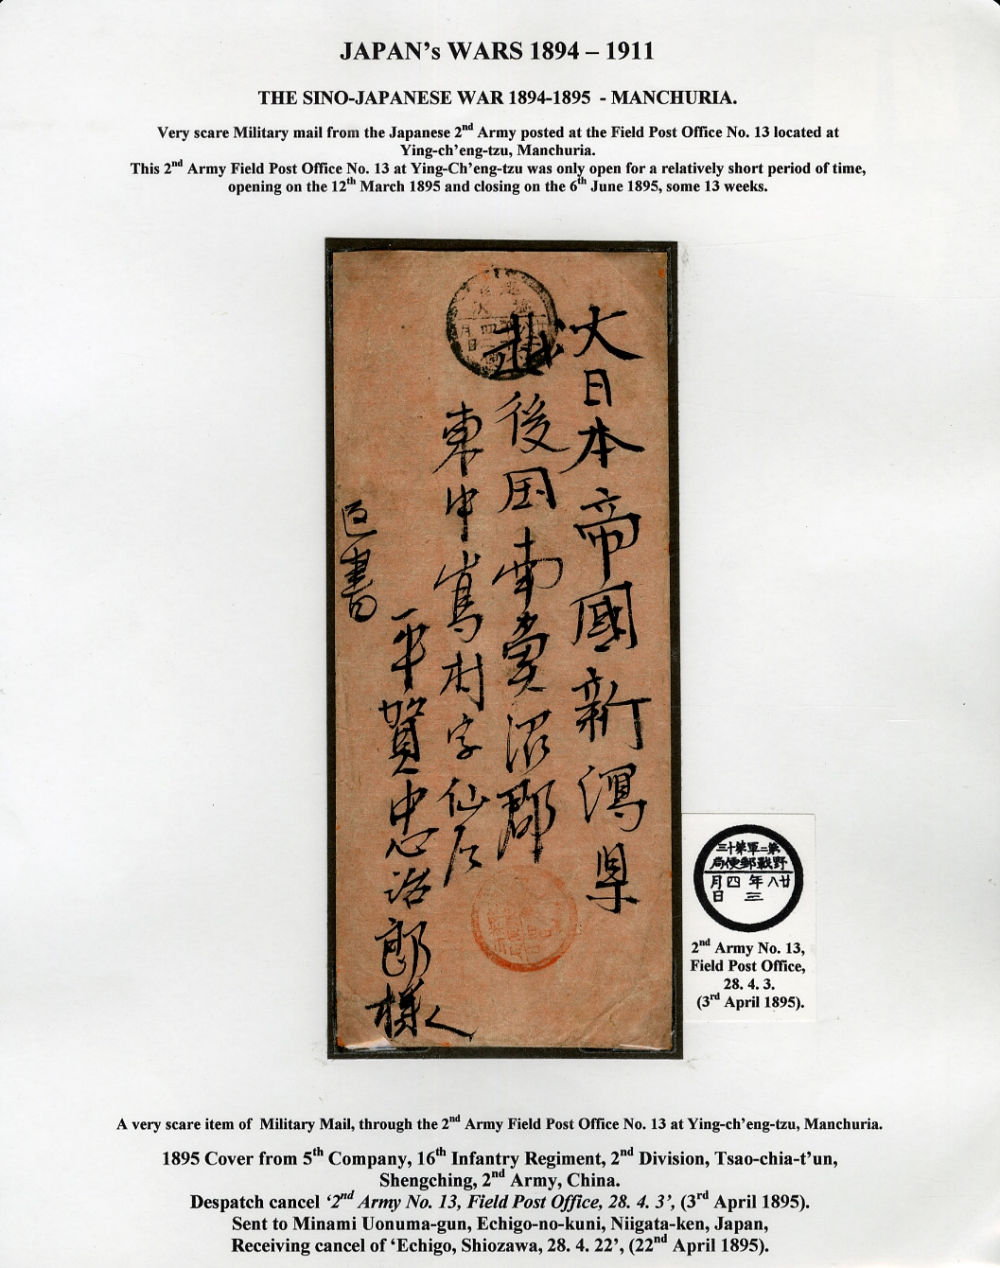 JAPAN's WARS 1894 – 1911
THE SINO-JAPANESE WAR 1894-1895 - MANCHURIA.
Very scare Military mail from the Japanese 2nd Army posted at the Field Post Office No. 13 located at
Ying-ch'eng-tzu, Manchuria.
This 2nd Army Field Post Office No. 13 at Ying-Ch'eng-tzu was only open for a relatively short period of time,
opening on the 12th March 1895 and closing on the 6th June 1895, some 13 weeks.
大日本帝國新潟県
越後国南魚沼郡
東中嶌村字仙石
平賀忠治郎様
第二軍第十三
野戰郵便局
廿八年四月
三日
2nd Army No. 13,
Field Post Office,
28. 4. 3.
(3rd April 1895).
A very scare item of Military Mail, through the 2nd Army Field Post Office No. 13 at Ying-ch'eng-tzu, Manchuria.
1895 Cover from 5th Company, 16th Infantry Regiment, 2nd Division, Tsao-chia-t'un,
Shengching, 2nd Army, China.
Despatch cancel '2nd Army No. 13, Field Post Office, 28. 4. 3', (3rd April 1895).
Sent to Minami Uonuma-gun, Echigo-no-kuni, Niigata-ken, Japan,
Receiving cancel of 'Echigo, Shiozawa, 28. 4. 22', (22nd April 1895).